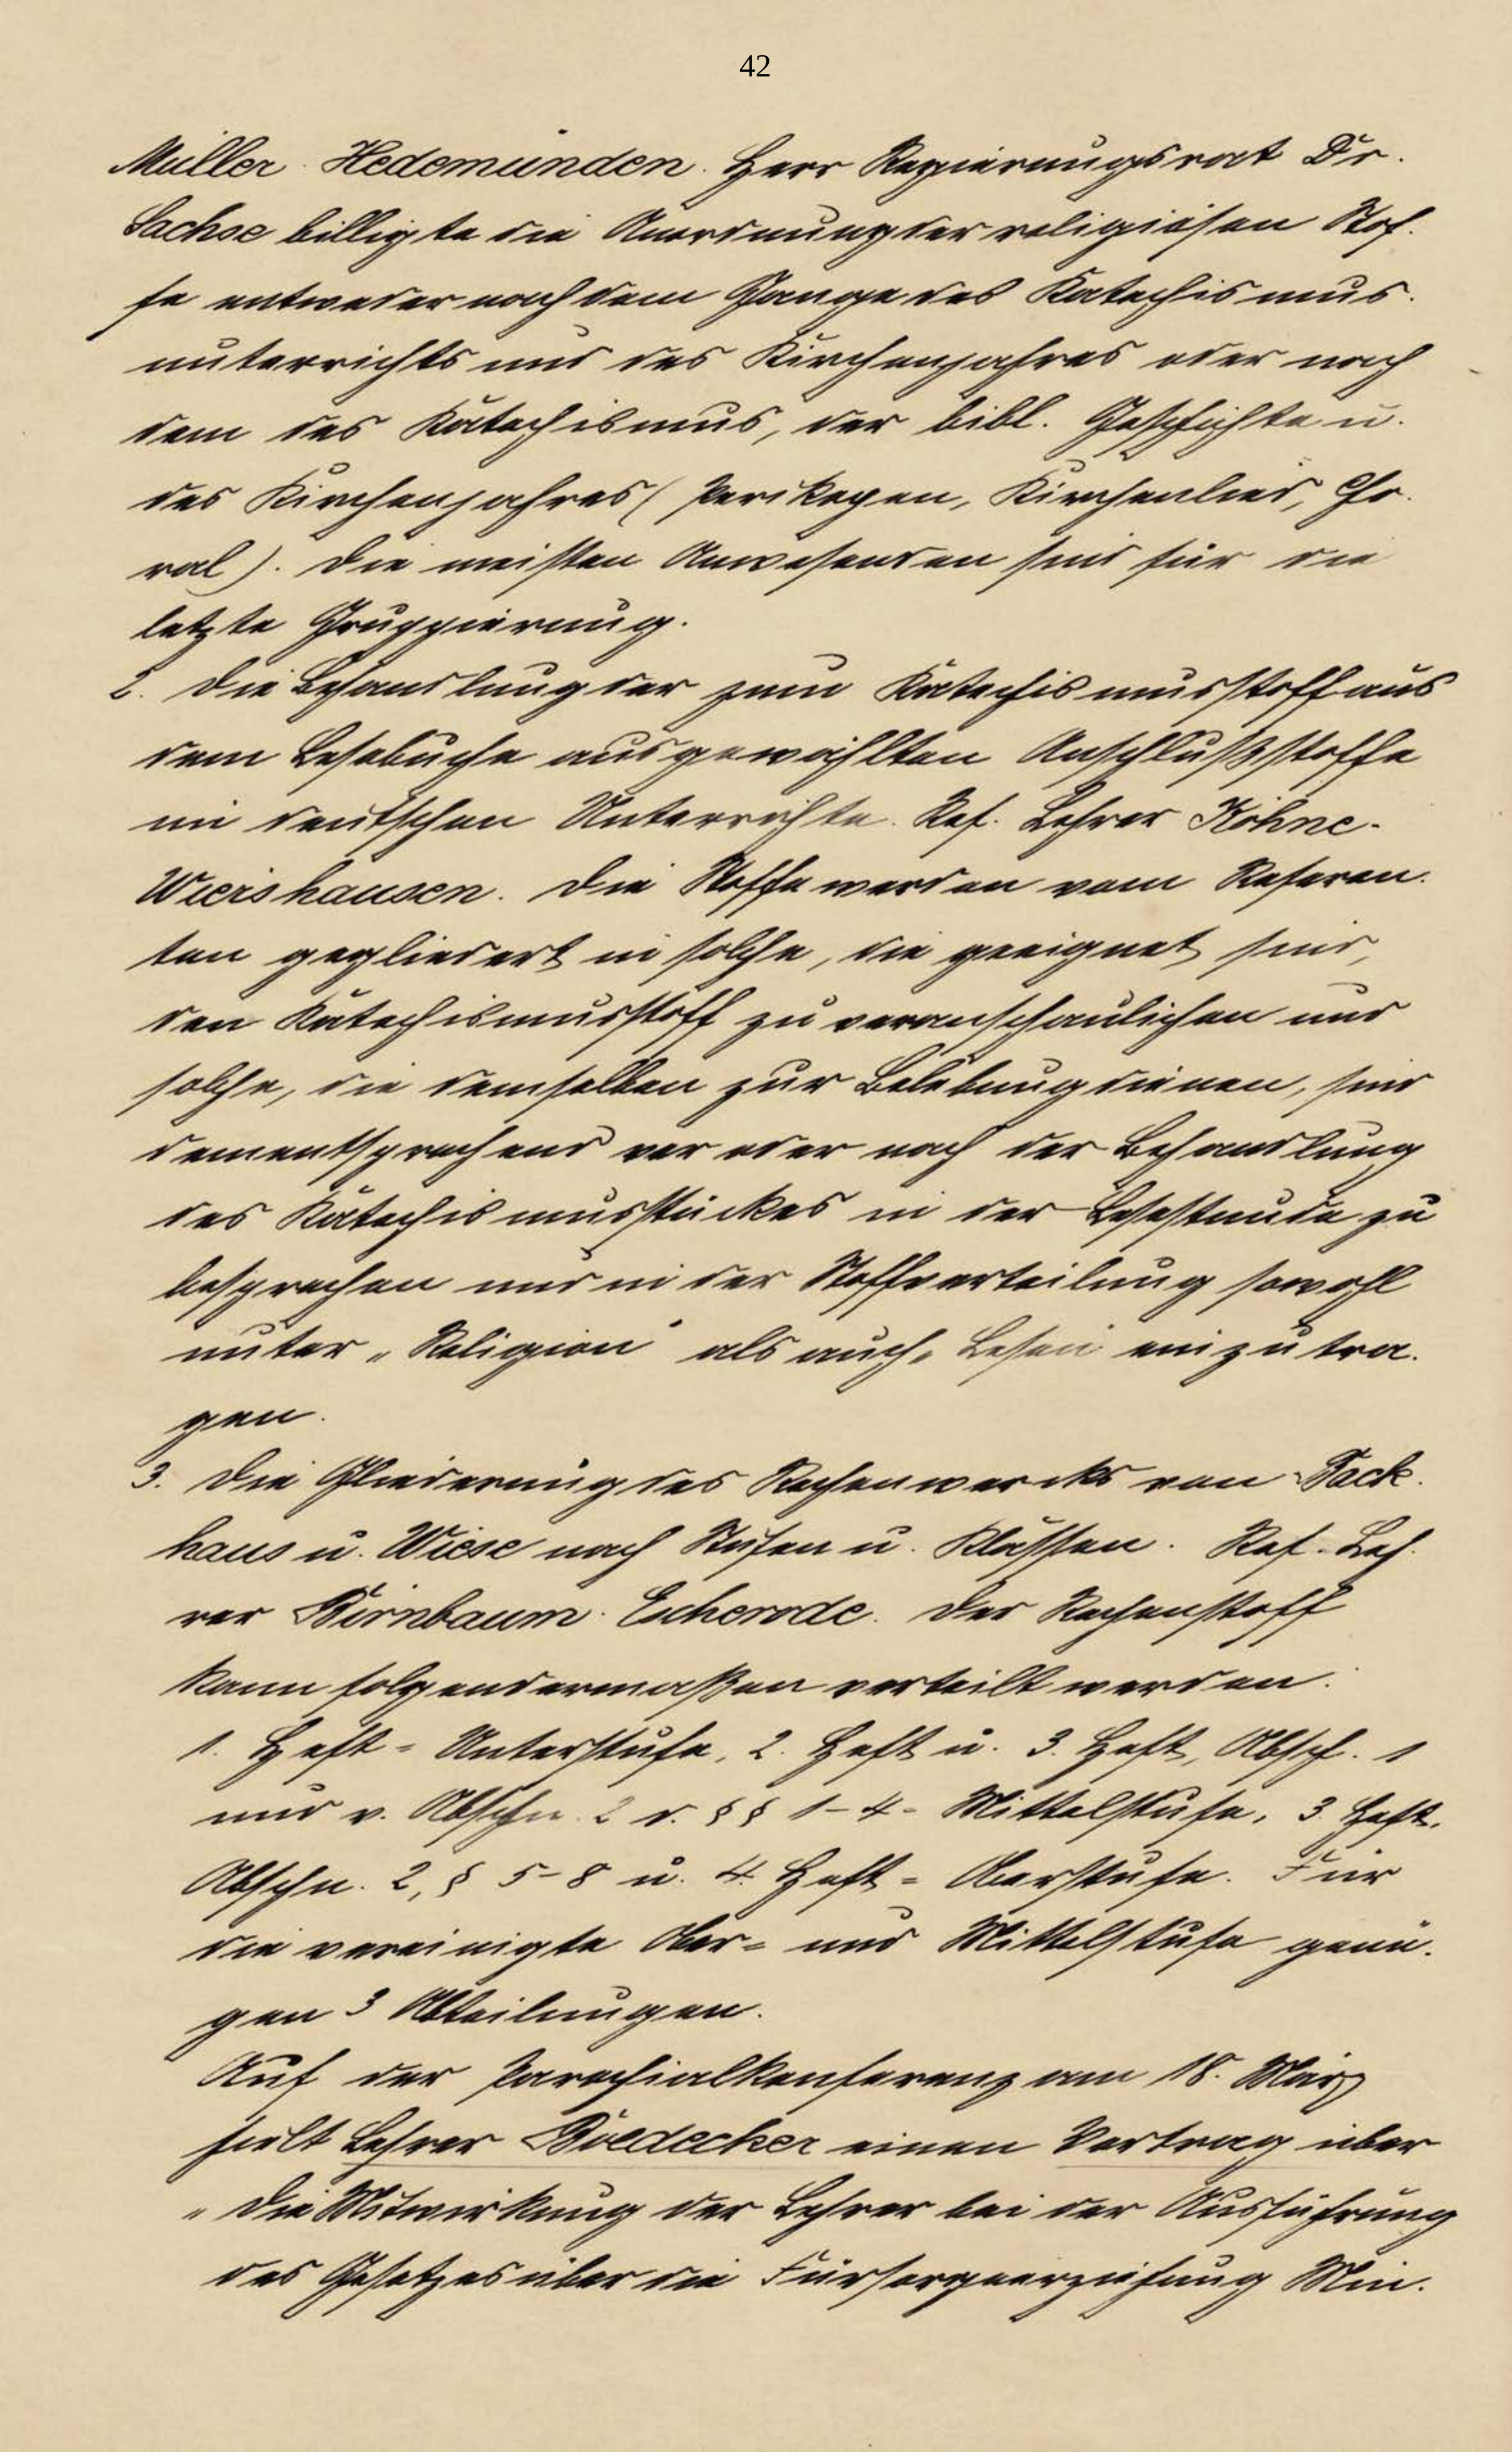 42
Müller-Hedemünden. Herr Regierungsrat Dr.
Sachse billigte die Anordnung der religiösen Stof-
fe entweder nach dem Gange des Katechismus-
unterrichts und des Kirchenjahres oder nach
dem des Katechismus, der bibl. Geschichte u.
des Kirchenjahres (Perikopen, Kirchenlied, Cho-
ral). Die meisten Anwesenden sind für die
letzte Gruppierung.
2. Die Behandlung der zum Katechismusstoff aus
dem Lesebuche ausgewählten Anschlußstoffe
im deutschen Unterrichte. Ref. Lehrer Köhne-
Wiershausen. Die Stoffe werden vom Referen-
ten gegliedert in solche, die geeignet sind,
den Katechismusstoff zu veranschaulichen und
solche, die demselben zur Belebung dienen, sind
dementsprechend vor oder nach der Behandlung
des Katechismusstückes in der Lesestunde zu
besprechen und in der Stoffverteilung sowohl
unter „Religion" als auch „Lesen" einzutra-
gen.
3. Die Gliederung des Rechenwerks von Pack-
haus u. Wiese nach Stufen u. Klassen. Ref. Leh-
rer Birnbaum-Escherode. Der Rechenstoff
kann folgendermaßen verteilt werden:
1. Heft = Unterstufe, 2. Heft u. 3. Heft, Absch. 1
und v. Abschn. 2 d. §§ 1-4 = Mittelstufe, 3. Heft.
Abschn. 2, § 5-8 u. 4. Heft = Oberstufe. Für
die vereinigte Ober- und Mittelstufe genü-
gen 3 Abteilungen.
Auf der Parochialkonferenz am 18. März
hielt Lehrer Boedecker einen Vortrag über
„Die Mitwirkung der Lehrer bei der Ausführung
des Gesetzes über die Fürsorgeerziehung Min-